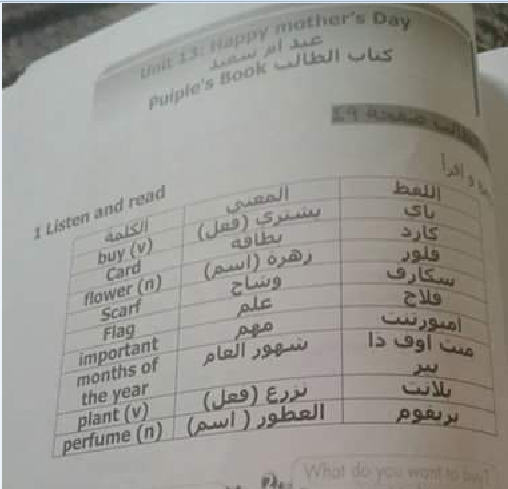 Unit 13: Happy mother's Day
عيد ام سعيد
Puiple's Book كتاب الطالب
صفحة ٤٩
1 Listen and read
الكلمة المعنى اللفظ
buy (v) يشتري (فعل) باي
Card بطاقة كارد
flower (n) زهرة (اسم) فلور
Scarf وشاح سكارف
Flag علم فلاج
important مهم امبورتنت
months of the year شهور العام منث اوف ذا يير
plant (v) نزرع (فعل) بلانت
perfume (n) العطور ( اسم) بريفوم
What do you want to buy?